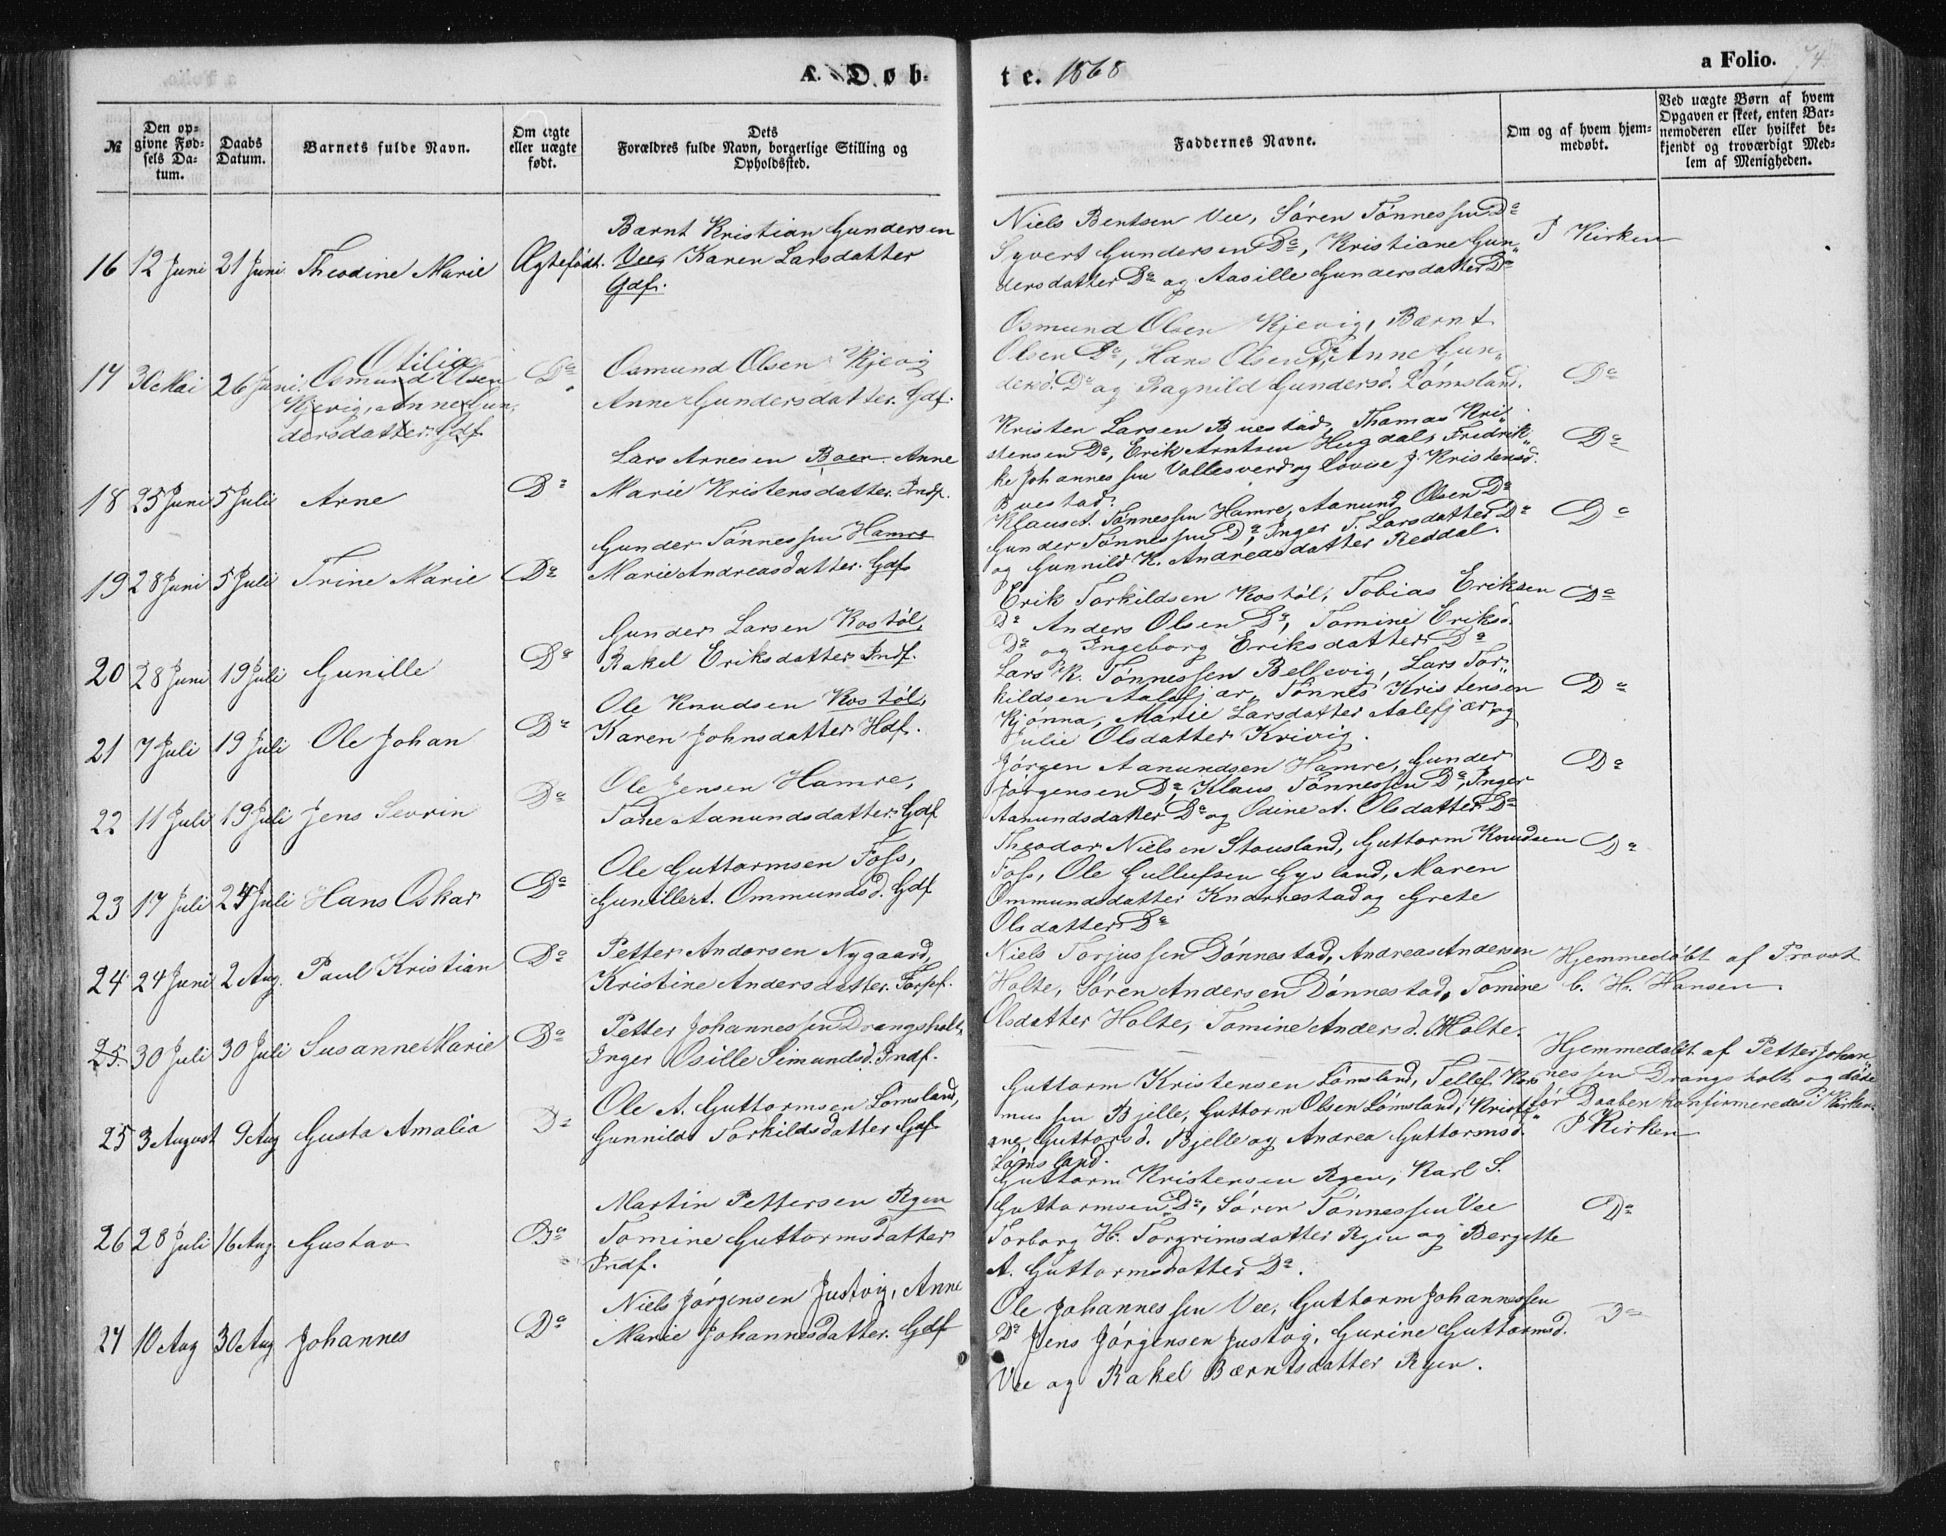 A. Døb-
te. 1868
a Folio. 74
№
Den op-
givne Fød-
sels Da-
tum.
Daabs
Datum.
Barnets fulde Navn.
Om ægte
eller uægte
født.
Dets
Forældres fulde Navn, borgerlige Stilling og
Opholdssted.
Faddernes Navne.
Om og af hvem hjem-
medøbt.
Ved uægte Børn af hvem
Opgaven er skeet, enten Bar-
nemoderen eller hvilket be-
kjendt og troværdigt Med-
lem af Menigheden.
16 12 Juni 21 Juni Theodine Marie Ægtefødt.
Bærnt Kristian Gundersen
Vee, Karen Larsdatter
Gdf.
Niels Bentsen Vee, Sören Tönnessen Do
Syvert Gundersen Do, Kristiane Gun-
dersdatter Do og Aasille Gundersdatter Do
I Kirken
17 30 Mai 26 Juni Otilia
Osmund Olsen
Kjevig, Anne Gun-
dersdatter. Gdf
Do
Osmund Olsen Kjevig
Anne Gundersdatter. Gdf.
Osmund Olsen Kjevig, Bærnt
Olsen Do, Hans Olsen Do, Anne Gun-
dersd. Do og Ragnild Gundersd. Lömsland.
Do
18 25 Juni 5 Juli Arne Do
Lars Arnesen Boen. Anne
Marie Kristensdatter. Indf.
Kristen Larsen Buestad, Thomas Kri-
stensen Do, Erik Arntsen Hugdal, Fredrik-
ke Johannessen Vollesverd og Lovise J. Kristensd.
Buestad.
Do
19 28 Juni 5 Juli Trine Marie Do
Gunder Tönnessen Hamre
Marie Andreasdatter. Gdf.
Klaus A. Tönnessen Hamre, Aanund Olsen Do
Gunder Tönnessen Do, Inger T. Larsdatter Do
og Gunnild K. Andreasdatter Reddal.
Do
20 28 Juni 19 Juli Gunille Do
Gunder Larsen Kostöl,
Rakel Eriksdatter Indf.
Erik Torkildsen Kostöl, Tobias Eriksen
Do Anders Olsen Do, Tomine Eriksd.
Do og Ingeborg Eriksdatter Do
Do
21 7 Juli 19 Juli Ole Johan Do
Ole Knudsen Kostöl,
Karen Johnsdatter Hdf.
Lars K. Tönnessen Bellevig, Lars Tor-
kildsen Aalefjær, Tönnes Kristensen
Kjönna, Marie Larsdatter Aalefjær og
Julie Olsdatter Krivig.
Do
22 11 Juli 19 Juli Jens Sevrin Do
Ole Jensen Hamre,
Tone Aanundsdatter. Gdf
Jörgen Aanundsen Hamre, Gunder
Jörgensen Do, Klaus Tönnessen Do, Inger
Aanundsdatter Do og Odine A. Olsdatter Do
Do
23 17 Juli 24 Juli Hans Oskar Do
Ole Guttormsen Foss,
Gunille t. Ommundsd. Gdf
Theodor Nielsen Stousland, Guttorm Knudsen
Foss, Ole Gullufsen Gysland, Maren
Ommundsdatter Knarrestad og Grete
Olsdatter Do
Do
24 24 Juni 2 Aug. Paul Kristian Do
Petter Andersen Nygaard,
Kristine Andersdatter.
Niels Torjussen Dönnestad, Andreas Andersen
Holte, Sören Andersen Dönnestad, Tomine
Olsdatter Holte, Tomine Andersd. Holte.
Hjemmedöbt af Provst
C. H. Hansen.
25. 30 Juli 30 Juli Susanne Marie Do
Petter Johannessen Drangsholt,
Inger Osille Simundsd. Indf.
Hjemmedöbt af Petter Johan-
nessen Drangsholt og döde
för Daaben konfirmeredes i Kirken
25 3 August 9 Aug Gusta Amalia Do
Ole A. Guttormsen Lömsland,
Gunnild Torkildsdatter Gdf
Guttorm Kristensen Lömsland, Tellef Ras-
mussen Bjelle, Guttorm Olsen Lömsland, Kristi-
ane Guttorsd. Bjelle og Andrea Guttormsd.
Lömsland.
I Kirken
26 28 Juli 16 Aug Gustav Do
Martin Pettersen Ryen
Tomine Guttormsdatter
Indf.
Guttorm Kristensen Ryen, Karl S.
Guttormsen Do, Sören Tönnessen Vee
Torborg H. Torgrimsdatter Ryen og Bergette
A. Guttormsdatter Do.
Do
27 10 Aug 30 Aug Johannes Do
Niels Jörgensen Justvig, Anne
Marie Johannesdatter. Gdf
Ole Johannessen Vee, Guttorm Johannessen
Do Jens Jörgensen Justvig, Gurine Guttormsd.
Vee og Rakel Bærntsdatter Ryen.
Do